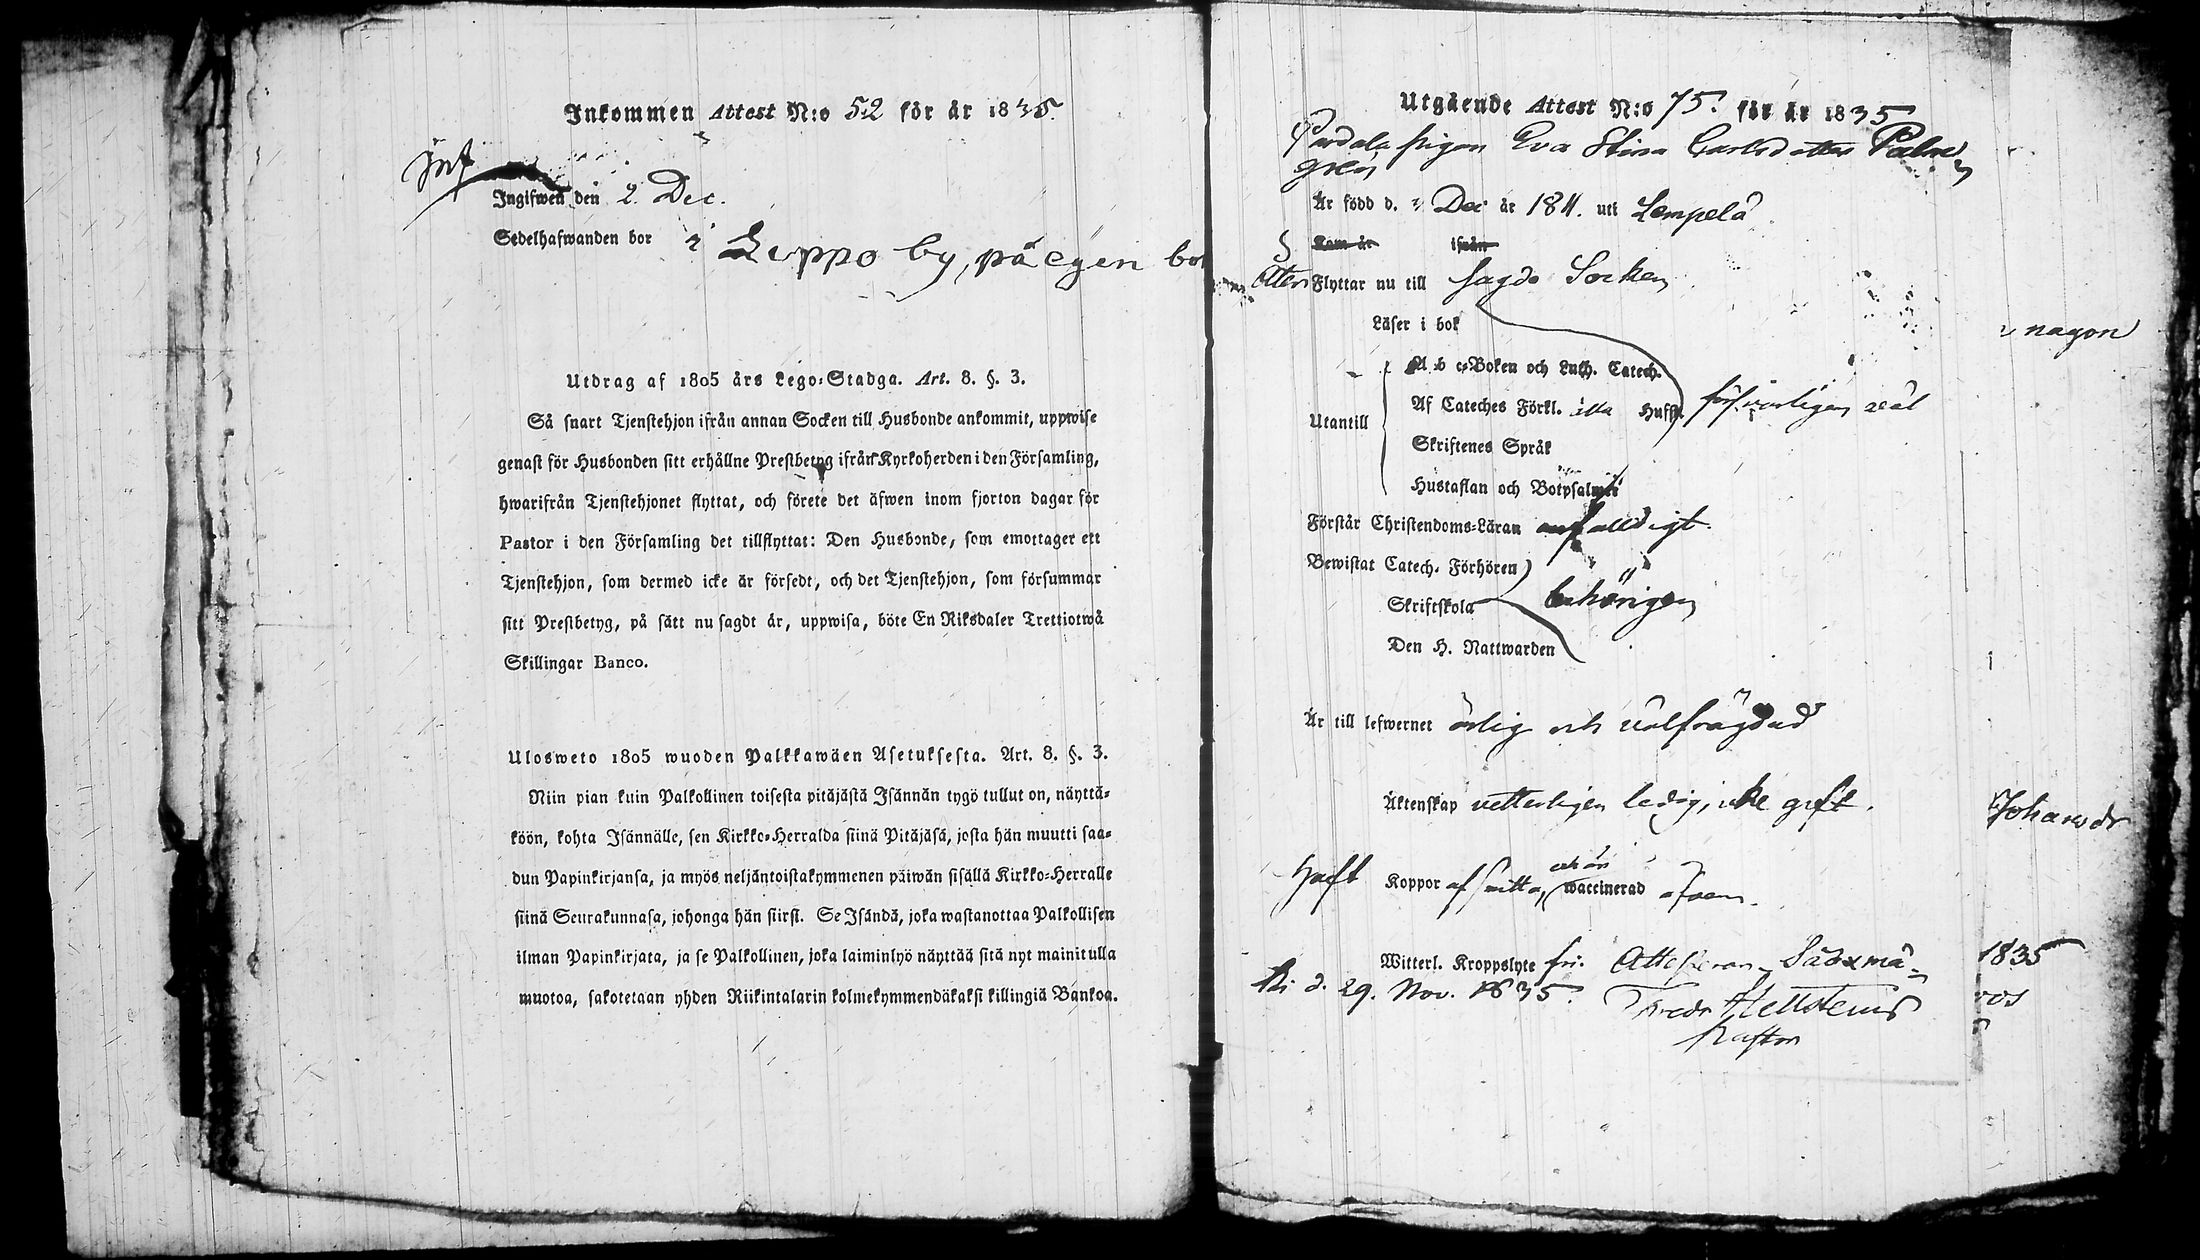 Inkommen Attest N:o 52 för år 1835.
Inf
Ingifwen den 2 Dec.
Sedelhafwanden bor i Leppo by, på egen
Utdrag af 1805 års Lego-Stadga. Art. 8. §. 3.
Så snart Tjenstehjon ifrån annan Socken till Husbonde ankommit, uppwise
genast för Husbonden sitt erhållne Prestbetyg ifrån Kyrkoherden i den Församling,
hwarifrån Tjenstehjonet flyttat, och förete det äfwen inom fjorton dagar för
Pastor i den Församling det tillflyttat: Den Husbonde, som emottager ett
Tjenstehjon, som dermed icke är försedt, och det Tjenstehjon, som försummar
sitt Prestbetyg, på sätt nu sagdt är, uppwisa, böte En Riksdaler Trettiotwå
Skillingar Banco.
Ulosweto 1805 wuoden Palkkawäen Asetuksesta. Art. 8. §. 3.
Niin pian kuin Palkollinen toisesta pitäjästä Isännän tygö tullut on, näyttä-
köön, kohta Isännälle, sen Kirkko-Herralda siinä Pitäjäsä, josta hän muutti saa-
dun Papinkirjansa, ja myös neljäntoistakymmenen päiwän sisällä Kirkko-Herralle
siinä Seurakunnasa, johonga hän siirsi. Se Isändä, joka wastanottaa Palkollisen
ilman Papinkirjata, ja se Palkollinen, joka laiminlyö näyttää sitä nyt mainitulla
muotoa, sakotetaan yhden Riikintalarin kolmekymmendäkaksi killingiä Bankoa.
Utgående Attest N:o 75. för år 1835
pigan Eva Stina Carlsdotter Palm
gren
Är född d. Dec år 1811. uti Lempelä
Kom år ifrån
Åter Flyttar nu till sagde Socken
Läser i bok
någon
Utantill
A b c-Boken och Luth. Catech.
Af Cateches Förkl. åtta Hufst. försvarligen väl
Skriftenes Språk
Hustaflan och Botpsalmer
Förstår Christendoms-Läran enfalldigt.
Bewistat Catech. Förhören
Skriftskola behörigen
Den H. Nattwarden
Är till lefwernet ärlig och välfrägdad
Äktenskap vetterligen ledig, icke gift.
Johansdr
Haft Koppor af smitta, och är waccinerad äfven.
Witterl. Kroppslyte fri. Attesterar Sääxmä-
1835
ki d. 29. Nov. 1835. Fredr Hellstenius
Pastor